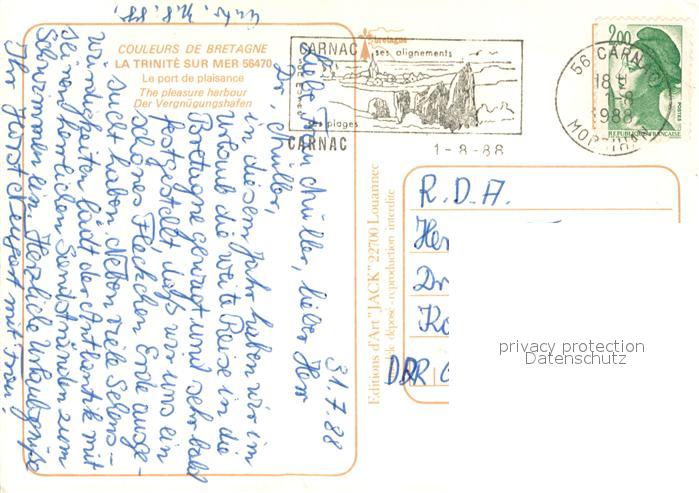 Antw. 11.8.88,
COULEURS DE BRETAGNE
LA TRINITÉ SUR MER 56470
Le port de plaisance
The pleasure harbour
Der Vergnügungshafen
31.7.88
Liebe Frau Müller, lieber Herr
Dr. Müller,
in diesem Jahr haben wir im
Urlaub die weite Reise in die
Bretagne gewagt und sehr bald
festgestellt, daß wir uns ein
schönes Fleckchen Erde ausge-
sucht haben. Neben viele Sehens-
würdigkeiten lädt der Atlantik mit
seinen herrlichen Sandstränden zum
Schwimmen ein. Herzliche Urlaubsgrüße
Ihr Horst mit Frau!
CARNAC
ses alignements
ses plages
CARNAC
bretagne
1-8-88
56 CARNAC
18 H
1-8
1988
MORBIHAN
2,00
POSTES
REPUBLIQUE FRANÇAISE
Editions d'Art "JACK" 22700 Louannec
déposé - reproduction interdite
R.D.A.
Her
Dr
Ko
DDR
privacy protection
Datenschutz